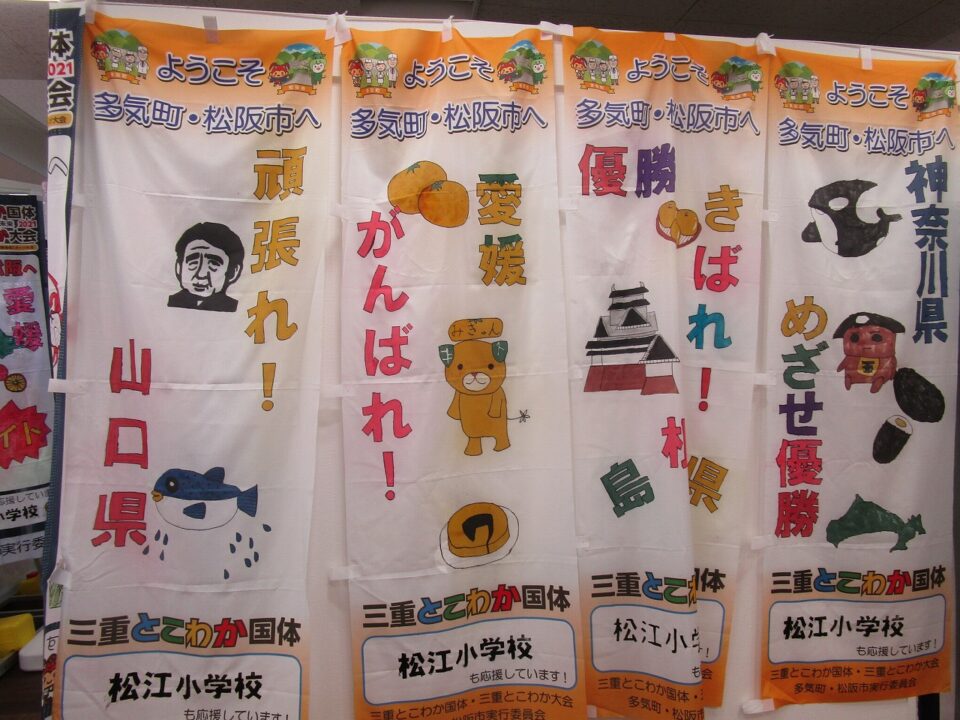 ようこそ
多気町・松阪市へ
頑張れ!
山口県
三重とこわか国体
松江小学校
も応援しています!
ようこそ
多気町・松阪市へ
愛媛
がんばれ!
みきゃん
三重とこわか国体
松江小学校
も応援しています!
三重とこわか国体・三重とこわか大会
松阪市実行委員会
ようこそ
多気町・松阪市へ
優勝
きばれ!
島
県
三重とこ
体
松江小学
も応援しています!
三重とこわか国体・三
多気町・松阪
ようこそ
多気町・松阪市へ
神奈川県
めざせ優勝
三重とこわか国体
松江小学校
も応援しています!
三重とこわか国体・三重とこわか大会
多気町・松阪市実行委員会
体
2021
会
へ
国体
2021
大会
阪へ
愛媛
イト
応援しています
小学校
実行委